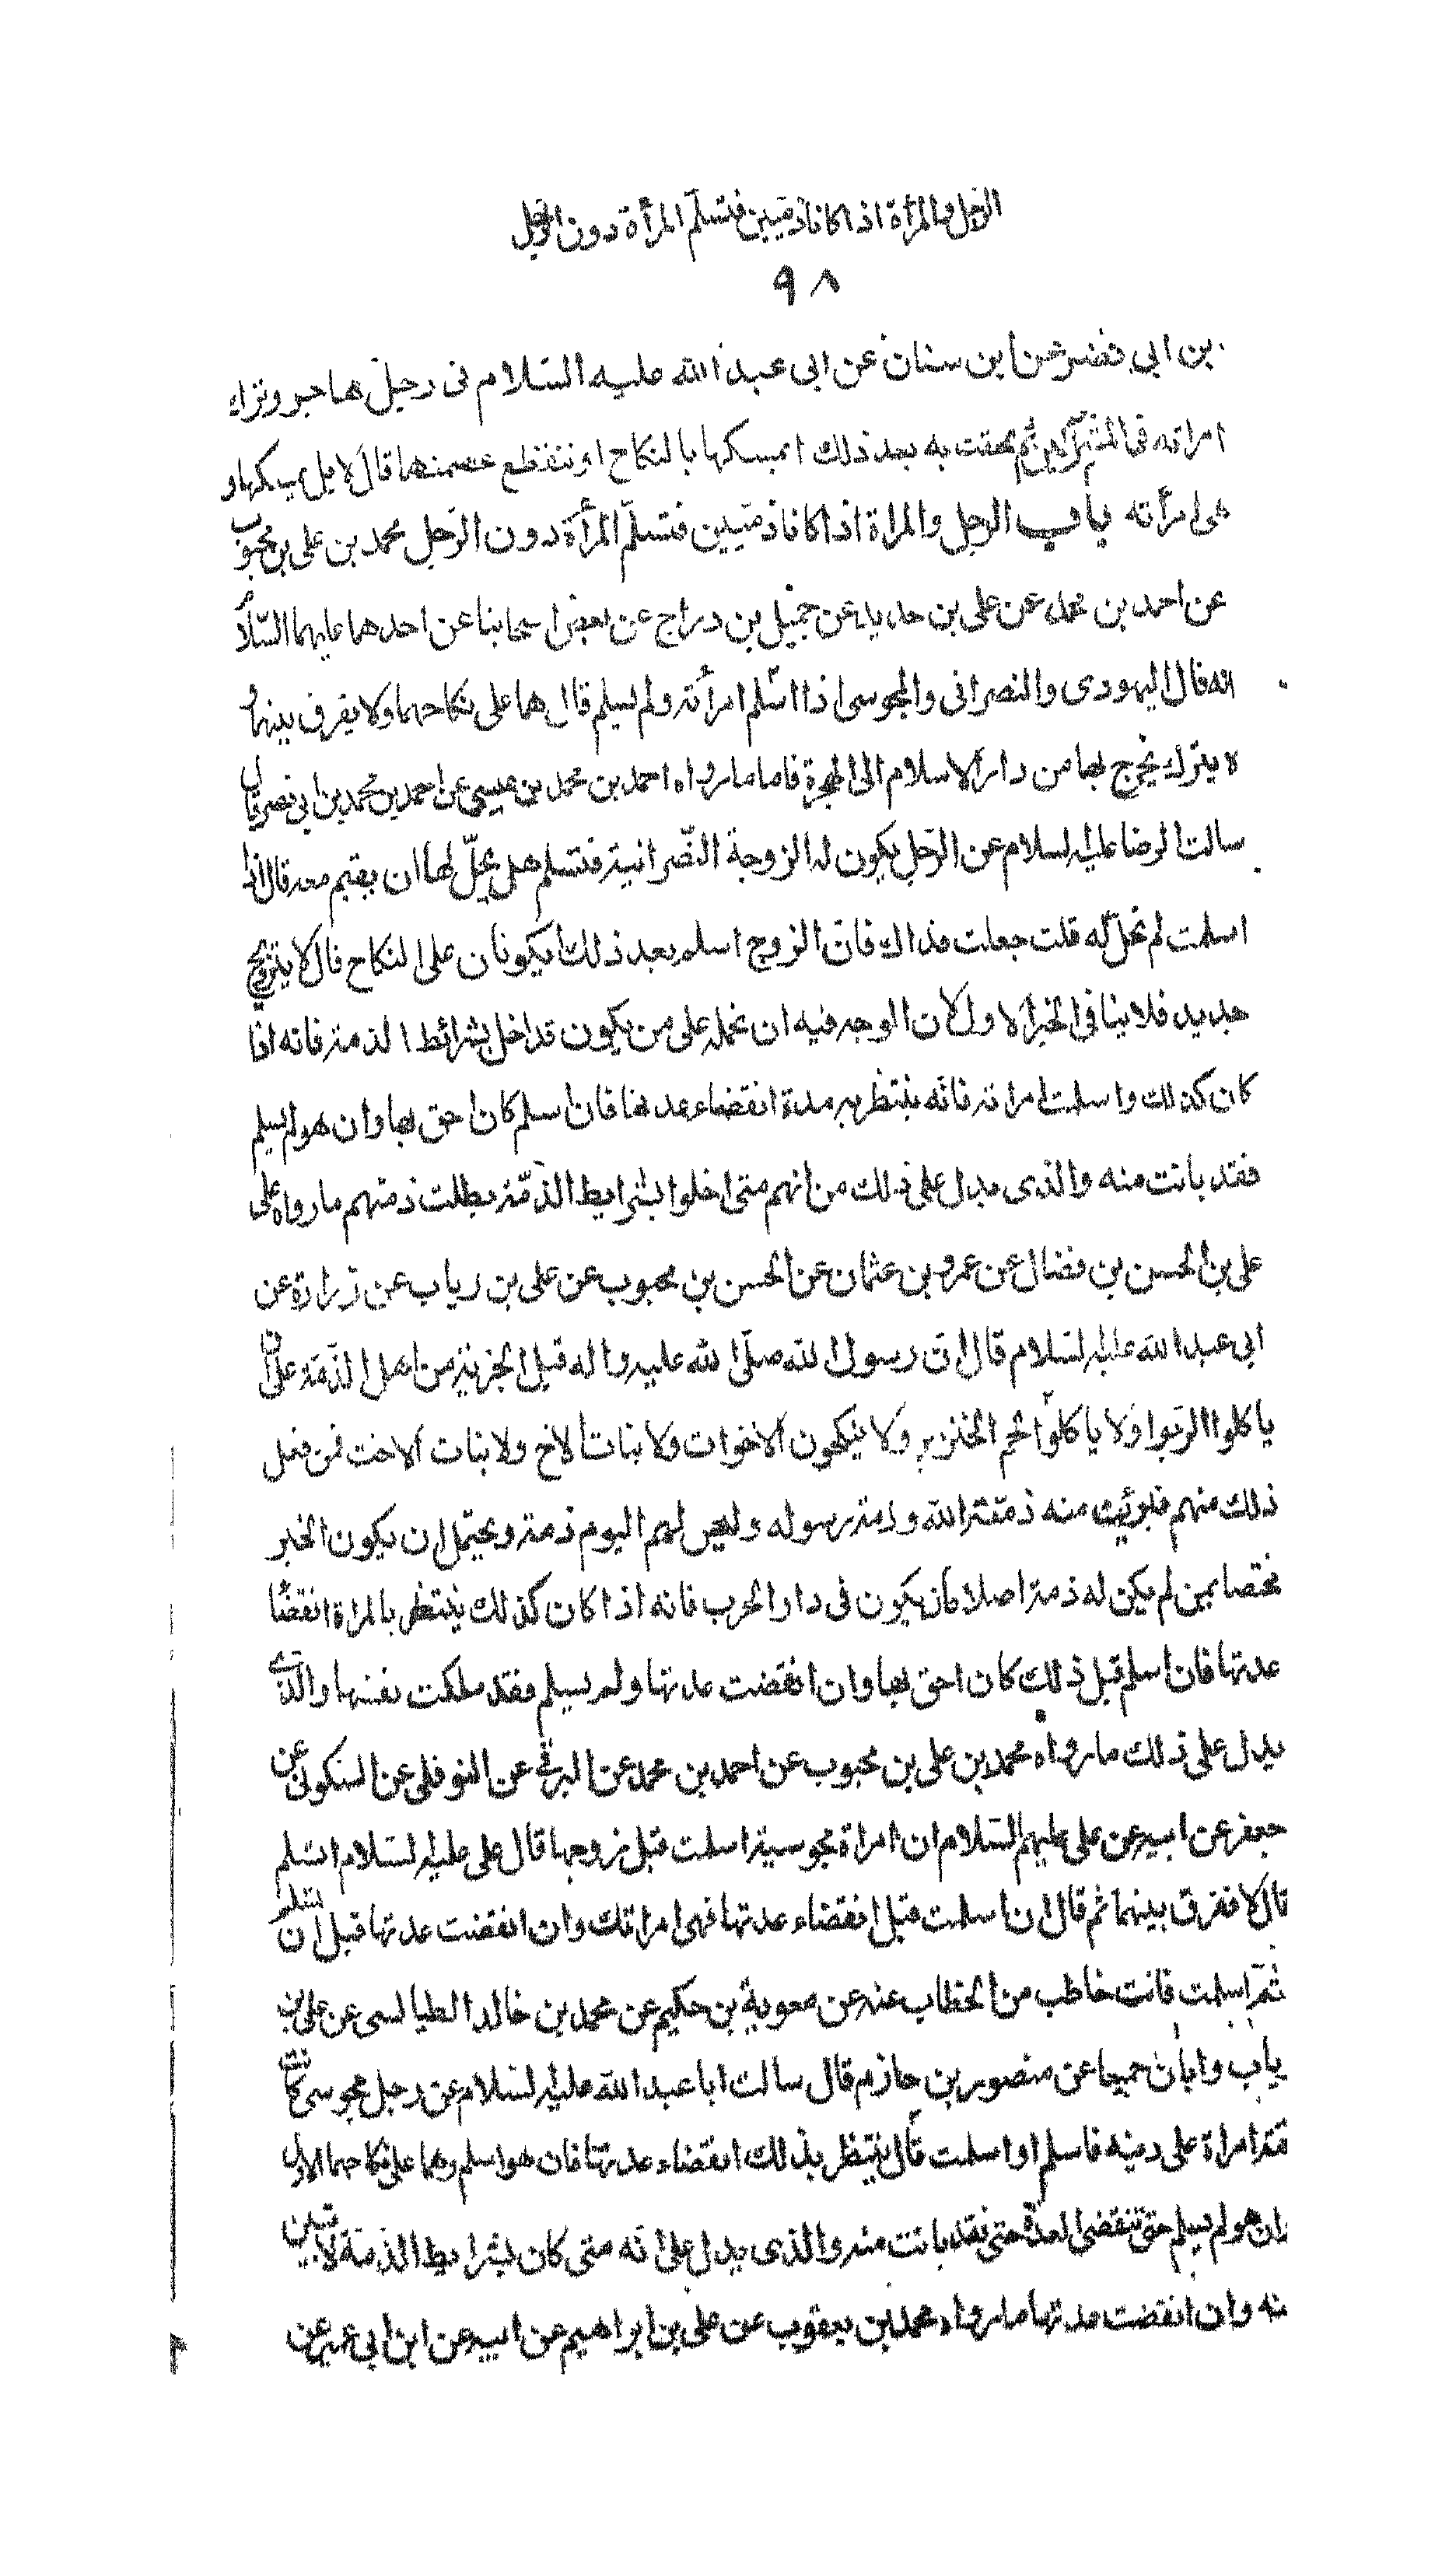 الرجل والمرأة اذا كانا ذميين فتسلم المرأة دون الرجل
٩٨
بن ابى نصر عن ابن سنان عن ابى عبد الله عليه السلام فى رجل هاجر وترك
امراته فى المشركين ثم لحقت به بعد ذلك ايمسكها بالنكاح او تنقطع عصمتها قال لا بل يمسكها و
هى امرأته باب الرجل والمراة اذا كانا ذميين فتسلم المرأة دون الرجل محمد بن على بن محبوب
عن احمد بن محمد عن على بن حديد عن جميل بن دراج عن بعض اصحابنا عن احدهما عليهما السلام
انه قال اليهودى والنصرانى والمجوسى اذا اسلم امرأته ولم يسلم قال هما على نكاحهما ولا يفرق بينهما و
لا يترك يخرج بها من دار الاسلام الى الهجرة فاما ما رواه احمد بن محمد بن عيسى عن احمد بن محمد بن ابى نصر قال
سالت الرضا عليه السلام عن الرجل يكون له الزوجة النصرانية فتسلم هل يحل لها ان يقيم معه قال اذا
اسلمت لم تحل له قلت جعلت فداك فان الزوج اسلم بعد ذلك ايكونان على النكاح قال لا يتزوج
جديد فلا ينافى الخبر الاول لان الوجه فيه ان نحمله على من يكون قد اخل بشرائط الذمة فانه اذا
كان كذلك واسلمت امراته فانه ينتظر به مدة انقضاء عدتها فان اسلم كان احق بها وان هو لم يسلم
فقد بانت منه والذى يدل على ذلك من انهم متى اخلوا بشرايط الذمة بطلت ذمتهم ما رواه على
على بن الحسن بن فضال عن عمرو بن عثمان عن الحسن بن محبوب عن على بن رياب عن زرارة عن
ابى عبد الله عليه السلام قال ان رسول الله صلى الله عليه واله قبل الجزية من اهل الذمة على ان
ياكلوا الربوا ولا ياكلوا لحم الخنزير ولا ينكحون الاخوات ولا بنات الاخ ولا بنات الاخت فمن فعل
ذلك منهم فبرئت منه ذمة الله وذمة رسوله وليس لهم اليوم ذمة ويحتمل ان يكون الخبر
مختصا بمن لم يكن له ذمة اصلا بان يكون فى دار الحرب فانه اذا كان كذلك ينتظر بالمراة انقضا
عدتها فان اسلم قبل ذلك كان احق بها وان انقضت عدتها ولم يسلم فقد ملكت نفسها والذى
يدل على ذلك ما رواه محمد بن على بن محبوب عن احمد بن محمد عن البرقى عن النوفلى عن السكونى عن
جعفر عن ابيه عن على عليهم السلام ان امراة مجوسية اسلمت قبل زوجها قال على عليه السلام اتسلم
قال لا ففرق بينهما ثم قال ان اسلمت قبل انقضاء عدتها فهى امراتك وان انقضت عدتها قبل ان تسلم
ثم اسلمت فانت خاطب من الخطاب عنه عن معوية بن حكيم عن محمد بن خالد الطيالسى عن على بن
رياب وابان جميعا عن منصور بن حازم قال سالت ابا عبد الله عليه السلام عن رجل مجوسى كانت
تحته امراة على دينه فاسلم او اسلمت قال ينتظر بذلك انقضاء عدتها فان هو اسلم وهما على نكاحهما الاول
وان هو لم يسلم حتى تنقضى العدة حتى فقد بانت منه والذى يدل على انه متى كان بشرايط الذمة لا تبين
منه وان انقضت عدتها ما رواه محمد بن يعقوب عن على بن ابراهيم عن ابيه عن ابن ابى عمير عن